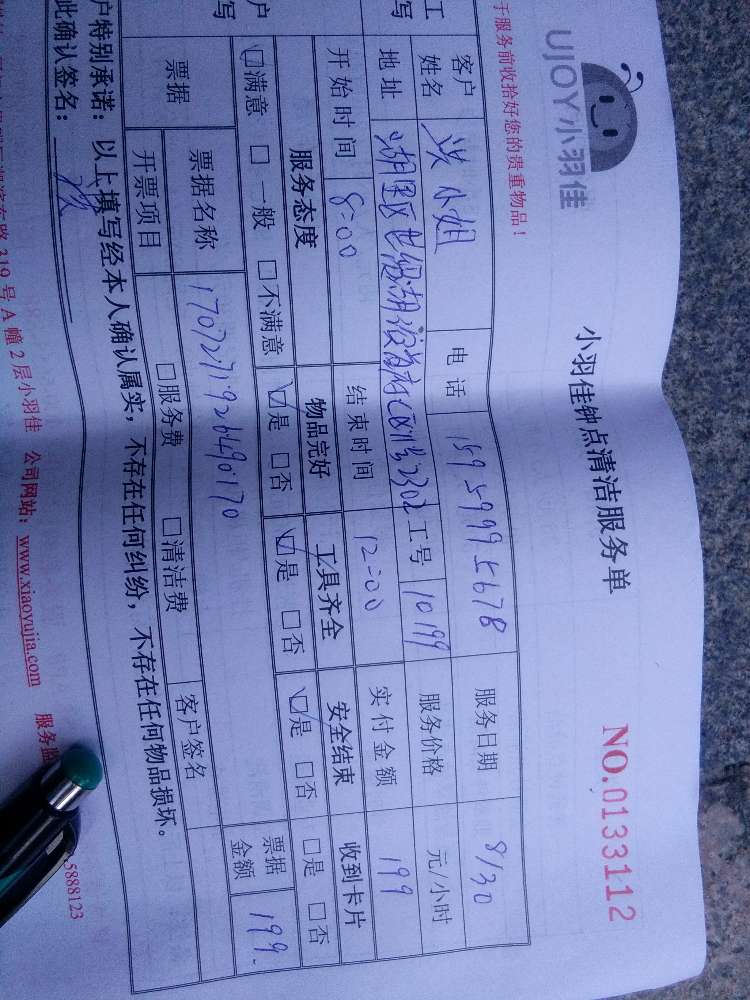 UJOY小羽佳
小羽佳钟点清洁服务单
NO.0133112
于服务前收拾好您的贵重物品！
工
写
客户
姓名
洪小姐
电话
159 5999 5678
服务日期
8/30
地址
湖里区
2302
工号
10199
服务价格
元/小时
开始时间
8:00
结束时间
12:00
实付金额
199
户
写
服务态度
物品完好
工具齐全
安全结束
收到卡片
☑满意 □一般 □不满意
☑是 □否
☑是 □否
☑是 □否
□是 □否
票据
票据名称
1707271926490170
票据
金额
199.
开票项目
□服务费 □清洁费
客户签名
户特别承诺：以上填写经本人确认属实，不存在任何纠纷，不存在任何物品损坏。
此确认签名：
319号A幢2层小羽佳 公司网站：www.xiaoyujia.com 服务监
5888123